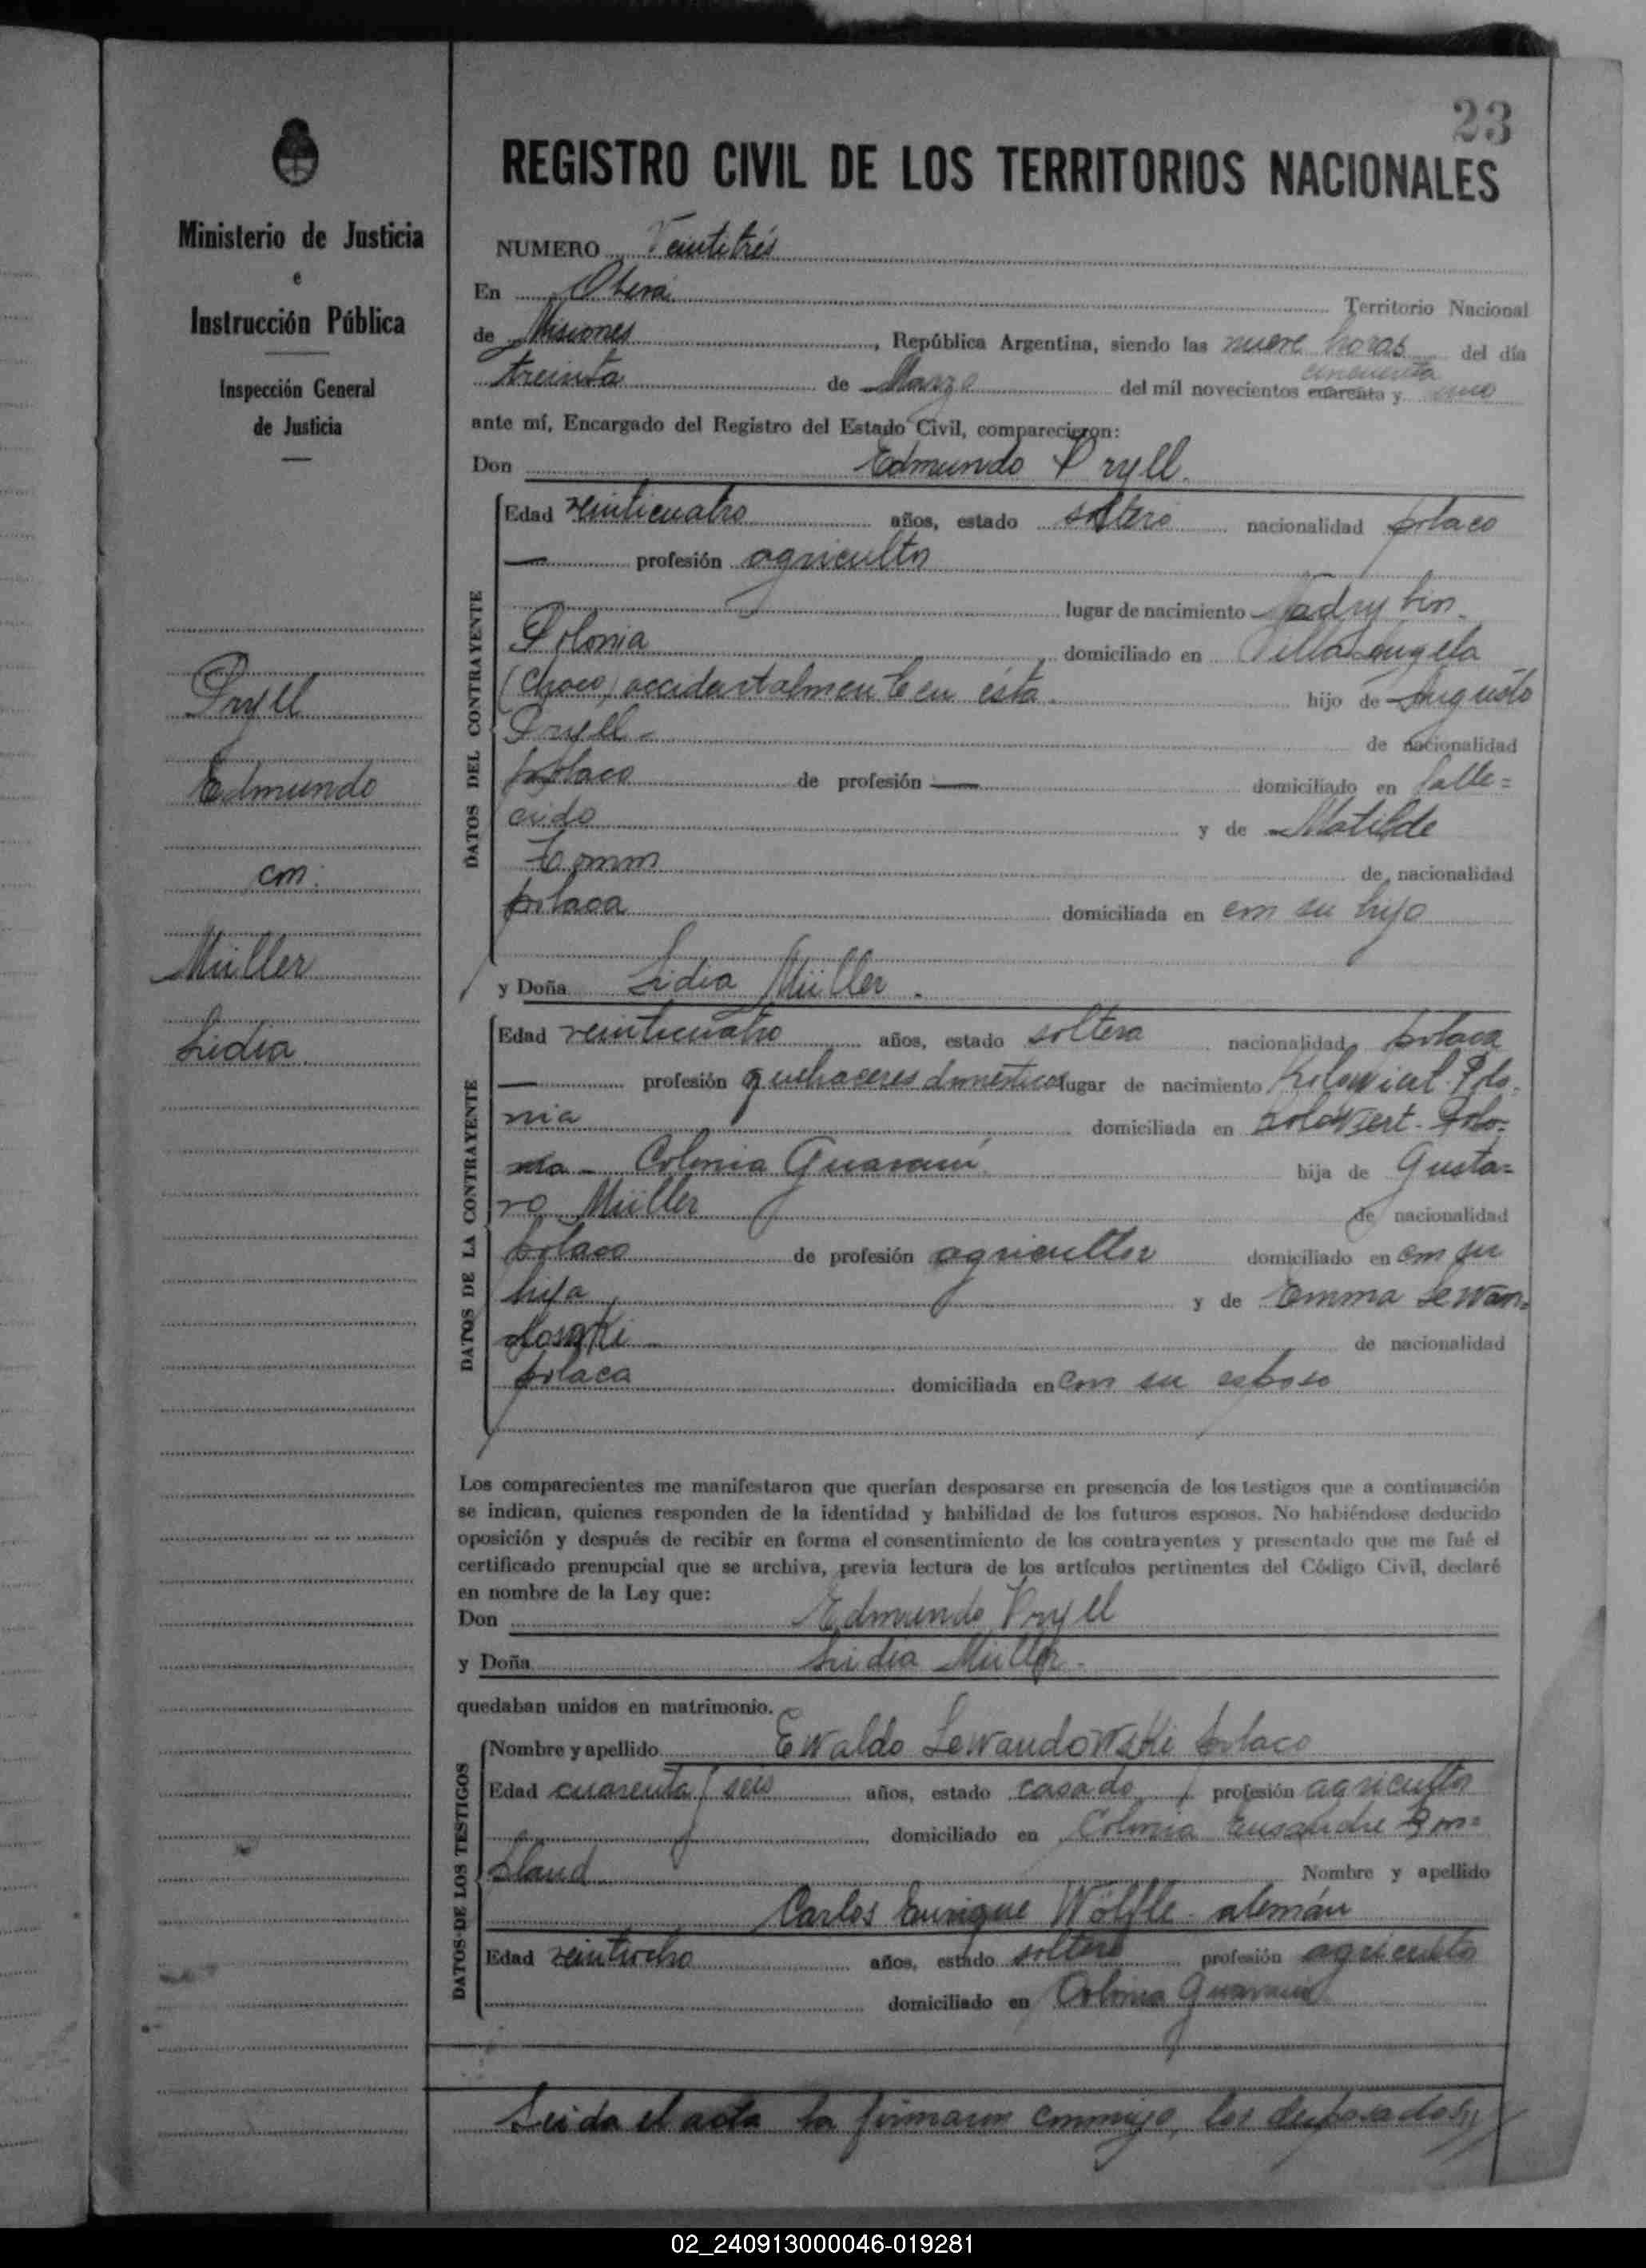 23
Ministerio de Justicia
e
Instrucción Pública
Inspección General
de Justicia
Pryll
Edmundo
con:
Müller
Lidia
REGISTRO CIVIL DE LOS TERRITORIOS NACIONALES
NUMERO Veintitrés
En Oberá Territorio Nacional
de Misiones, República Argentina, siendo las nueve horas del día
cincuenta
treinta de Marzo del mil novecientos cuarenta y uno
ante mí, Encargado del Registro del Estado Civil, comparecieron:
Don Edmundo Pryll.
DATOS DEL CONTRAYENTE
Edad veinticuatro años, estado soltero nacionalidad polaco
— profesión agricultor
lugar de nacimiento
Polonia domiciliado en Villa Angela
(Chaco) accidentalmente en ésta. hijo de Augusto
Pryll - de nacionalidad
polaco de profesión — domiciliado en falle=
cido y de Matilde
de nacionalidad
polaca domiciliada en con su hijo
y Doña Lidia Müller.
DATOS DE LA CONTRAYENTE
Edad veinticuatro años, estado soltera nacionalidad polaca
— profesión quehaceres domésticos lugar de nacimiento Polo-
nia domiciliada en Polo=
nia - Colonia Guaraní hija de Gusta=
vo Müller de nacionalidad
polaco de profesión agricultor domiciliado en con su
hija y de Emma Lewan=
de nacionalidad
polaca domiciliada en con su esposo
Los comparecientes me manifestaron que querían desposarse en presencia de los testigos que a continuación
se indican, quienes responden de la identidad y habilidad de los futuros esposos. No habiéndose deducido
oposición y después de recibir en forma el consentimiento de los contrayentes y presentado que me fué el
certificado prenupcial que se archiva, previa lectura de los artículos pertinentes del Código Civil, declaré
en nombre de la Ley que:
Don Edmundo Pryll
y Doña Lidia Müller -
quedaban unidos en matrimonio.
DATOS DE LOS TESTIGOS
Nombre y apellido Ewaldo Lewandowski polaco
Edad cuarenta y seis años, estado casado profesión agricultor
domiciliado en Colonia Bon=
pland Nombre y apellido
Carlos Enrique Wölfle - alemán
Edad veintiocho años, estado soltero profesión agricultor
domiciliado en Colonia Guaraní
Leida el acta la firmaron conmigo, los desposados,
02_240913000046-019281